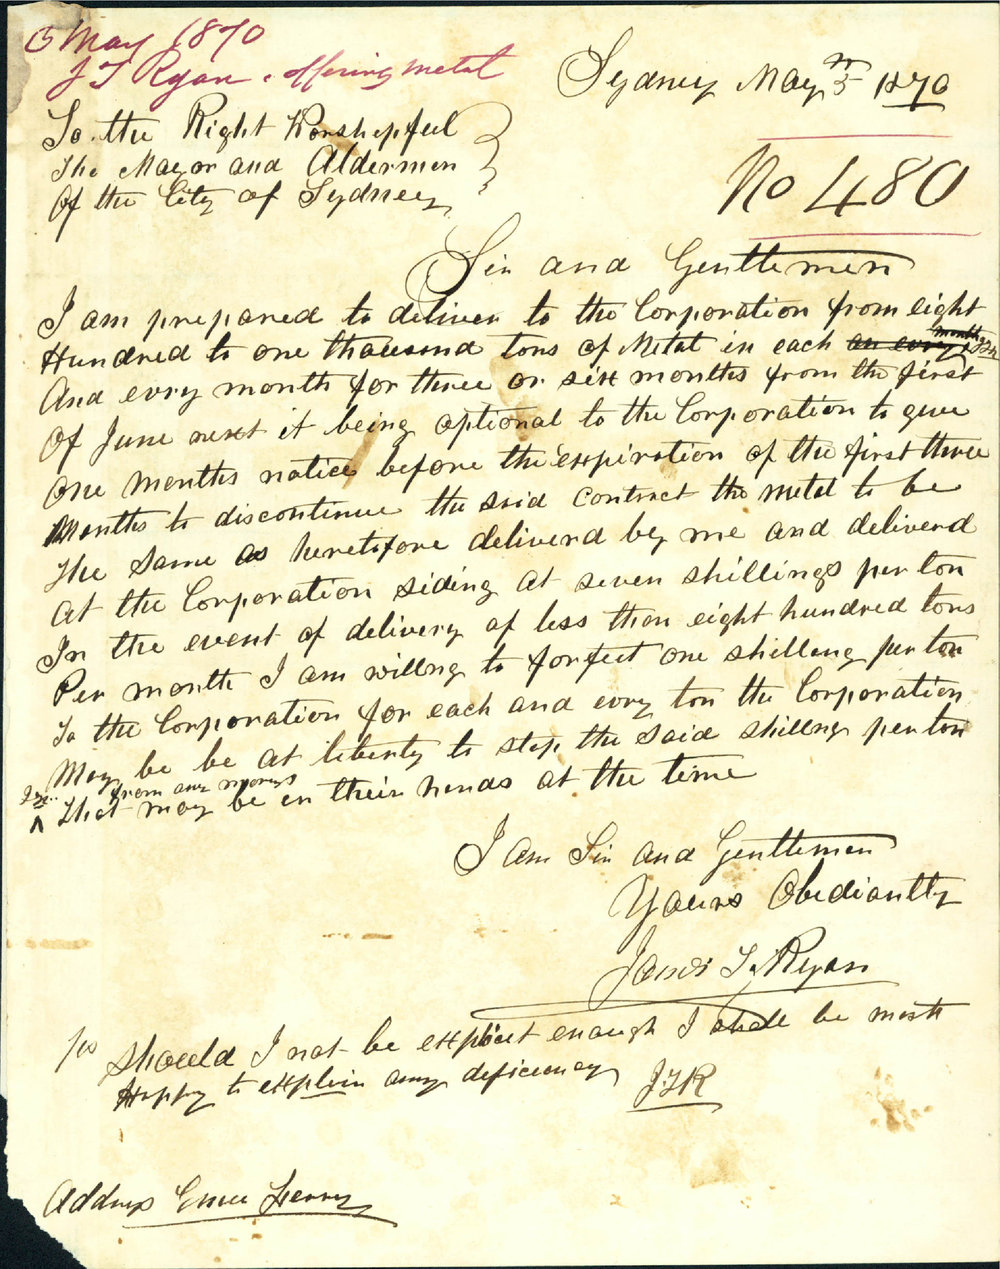 5 May 1870
J T Ryan . offering metal
Sydney May 5th 1870
To the Right Worshipful
The Mayor and Aldermen
Of the City of Sydney
No 480
Sir and Gentlemen
I am prepared to deliver to the Corporation from eight
Hundred to one thousand tons of Metal in each an evry month JTR
And evry month for three or six months from the first
Of June next it being optional to the Corporation to give
One Months notice before the expiration of the first three
Months to discontinue the said contract the metal to be
The same as heretofore deliverd by me and deliverd
At the Corporation siding at seven shillings per ton
In the event of delivery of less then eight hundred tons
Per month I am willing to forfeit one shilling per ton
To the Corporation for each and evry ton the Corporation
May be be at liberty to stop the said shillng per ton
JTR from any moneys
That may be in their hands at the time
I am Sir and Gentlemen
Yours Obediantly
James T Ryan
Ps Should I not be explicit enough I shall be most
Happy to explain any deficiency JTR
Address Emu Ferry